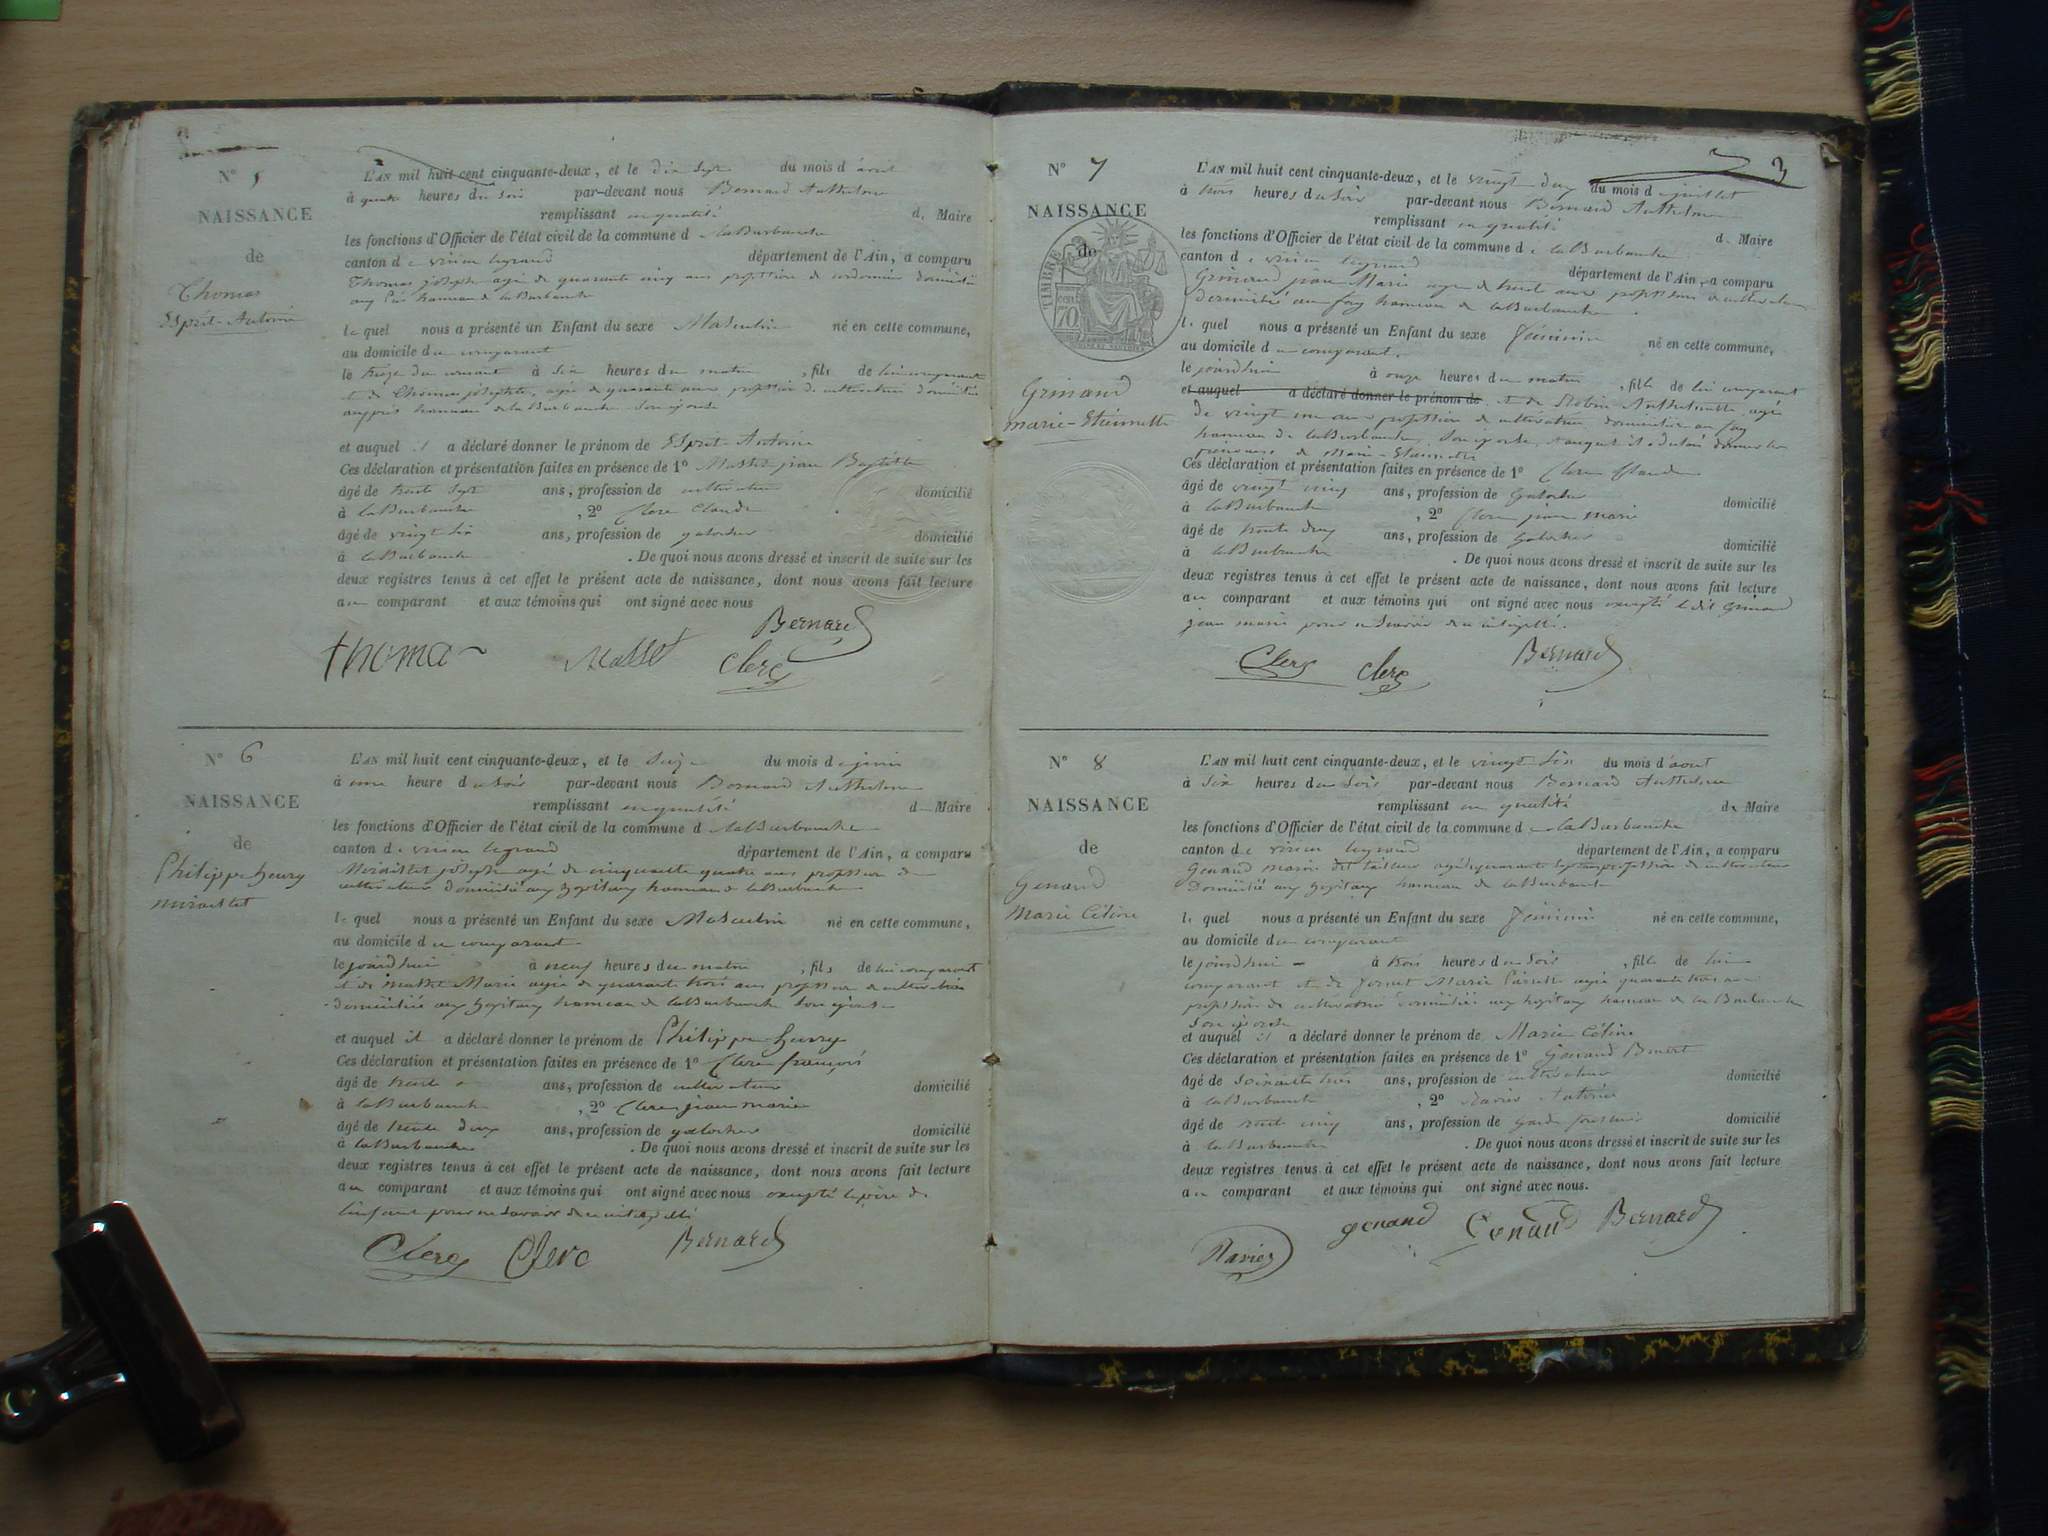 N° 5
NAISSANCE
de
Thomas
Esprit-Antoine
L'AN mil huit cent cinquante-deux, et le dix sept du mois d'avril
à quatre heures du soir par-devant nous Bernard Anthelme
remplissant en qualité de Maire
les fonctions d'Officier de l'état civil de la commune de laBurbanche
canton de virieu legrand département de l'Ain, a comparu
Thomas joseph agé de quarante cinq ans profession de cordonnier domicilié
hameau de laBurbanche
lequel nous a présenté un Enfant du sexe Masculin né en cette commune,
au domicile du comparant
le treize du courant à six heures du matin, fils de lui comparant
et de Thomas josephte, agée de quarante ans profession de cultivatrice domiciliée
hameau de laBurbanche son épouse
et auquel il a déclaré donner le prénom de Esprit-Antoine
Ces déclaration et présentation faites en présence de 1° Masset jean Baptiste
âgé de trente sept ans, profession de cultivateur domicilié
à laBurbanche, 2° Clerc Claude
âgé de vingt six ans, profession de galocher domicilié
à laBurbanche. De quoi nous avons dressé et inscrit de suite sur les
deux registres tenus à cet effet le présent acte de naissance, dont nous avons fait lecture
au comparant et aux témoins qui ont signé avec nous
Bernard
Thomas Masset Clerc
N° 6
NAISSANCE
de
Philippe henry
miraillet
L'AN mil huit cent cinquante-deux, et le seize du mois de juin
à une heure du soir par-devant nous Bernard Anthelme
remplissant en qualité de Maire
les fonctions d'Officier de l'état civil de la commune de laBurbanche
canton de virieu legrand département de l'Ain, a comparu
joseph agé de cinquante quatre ans profession de
cultivateur domicilié aux hopitaux hameau de laBurbanche
lequel nous a présenté un Enfant du sexe Masculin né en cette commune,
au domicile du comparant
le jourd'hui à neuf heures du matin, fils de lui comparant
et de Marie agée de quarante trois ans profession de cultivatrice
domiciliée aux hopitaux hameau de laBurbanche son épouse
et auquel il a déclaré donner le prénom de Philippe-henry
Ces déclaration et présentation faites en présence de 1° Clerc françois
âgé de trente ans, profession de cultivateur domicilié
à laBurbanche, 2° Clerc jean marie
âgé de trente deux ans, profession de galocher domicilié
à laBurbanche. De quoi nous avons dressé et inscrit de suite sur les
deux registres tenus à cet effet le présent acte de naissance, dont nous avons fait lecture
au comparant et aux témoins qui ont signé avec nous excepté le père de
l'enfant pour ne savoir de ce interpellé
Clerc Clerc Bernard
3
N° 7
NAISSANCE
de
TIMBRE
70
Grinand
marie-Etiennette
L'AN mil huit cent cinquante-deux, et le vingt deux du mois de juillet
à trois heures du soir par-devant nous Bernard Anthelme
remplissant en qualité de Maire
les fonctions d'Officier de l'état civil de la commune de laBurbanche
canton de virieu legrand département de l'Ain, a comparu
Grinand jean Marie agé de trente ans profession de cultivateur
Domicilié au fay hameau de laBurbanche
lequel nous a présenté un Enfant du sexe féminin né en cette commune,
au domicile du comparant.
le jourd'hui à onze heures du matin, fille de lui comparant
et auquel a déclaré donner le prénom de et de Anthelmette, agée
de vingt ans profession de cultivatrice domiciliée au fay
hameau de laBurbanche, son épouse, et auquel il a déclaré donner les
prénoms de Marie-Etiennette
Ces déclaration et présentation faites en présence de 1° Clerc Claude
âgé de vingt cinq ans, profession de Galocher domicilié
à laBurbanche, 2° Clerc jean marie
âgé de trente deux ans, profession de Galocher domicilié
à laBurbanche. De quoi nous avons dressé et inscrit de suite sur les
deux registres tenus à cet effet le présent acte de naissance, dont nous avons fait lecture
au comparant et aux témoins qui ont signé avec nous excepté le dit Grinand
jean marie pour ne savoir de ce interpellé.
Clerc Clerc Bernard
N° 8
NAISSANCE
de
Genand
Marie Céline
L'AN mil huit cent cinquante-deux, et le vingt six du mois d'août
à six heures du soir par-devant nous Bernard Anthelme
remplissant en qualité de Maire
les fonctions d'Officier de l'état civil de la commune de laBurbanche
canton de virieu legrand département de l'Ain, a comparu
Genand marin dit tailleur agé de quarante sept ans profession de cultivateur
Domicilié aux hopitaux hameau de laBurbanche
lequel nous a présenté un Enfant du sexe féminin né en cette commune,
au domicile du comparant
le jourd'hui à trois heures du soir, fille de lui
comparant et de Marie agée quarante trois ans
profession de cultivatrice domiciliée aux hopitaux hameau de la Burbanche
son épouse
et auquel il a déclaré donner le prénom de Marie Céline
Ces déclaration et présentation faites en présence de 1° Genand Benoit
âgé de soixante trois ans, profession de cultivateur domicilié
à laBurbanche, 2° Ravier Antoine
âgé de trente cinq ans, profession de garde forestier domicilié
à laBurbanche. De quoi nous avons dressé et inscrit de suite sur les
deux registres tenus à cet effet le présent acte de naissance, dont nous avons fait lecture
au comparant et aux témoins qui ont signé avec nous.
Ravier genand Genand Bernard